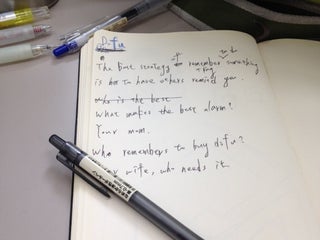 Dofu
The best strategy of remember something
is to have others remind you.
who is the best
What makes the best alarm?
Your mom.
Who remembers to buy dofu?
Your wife, who needs it